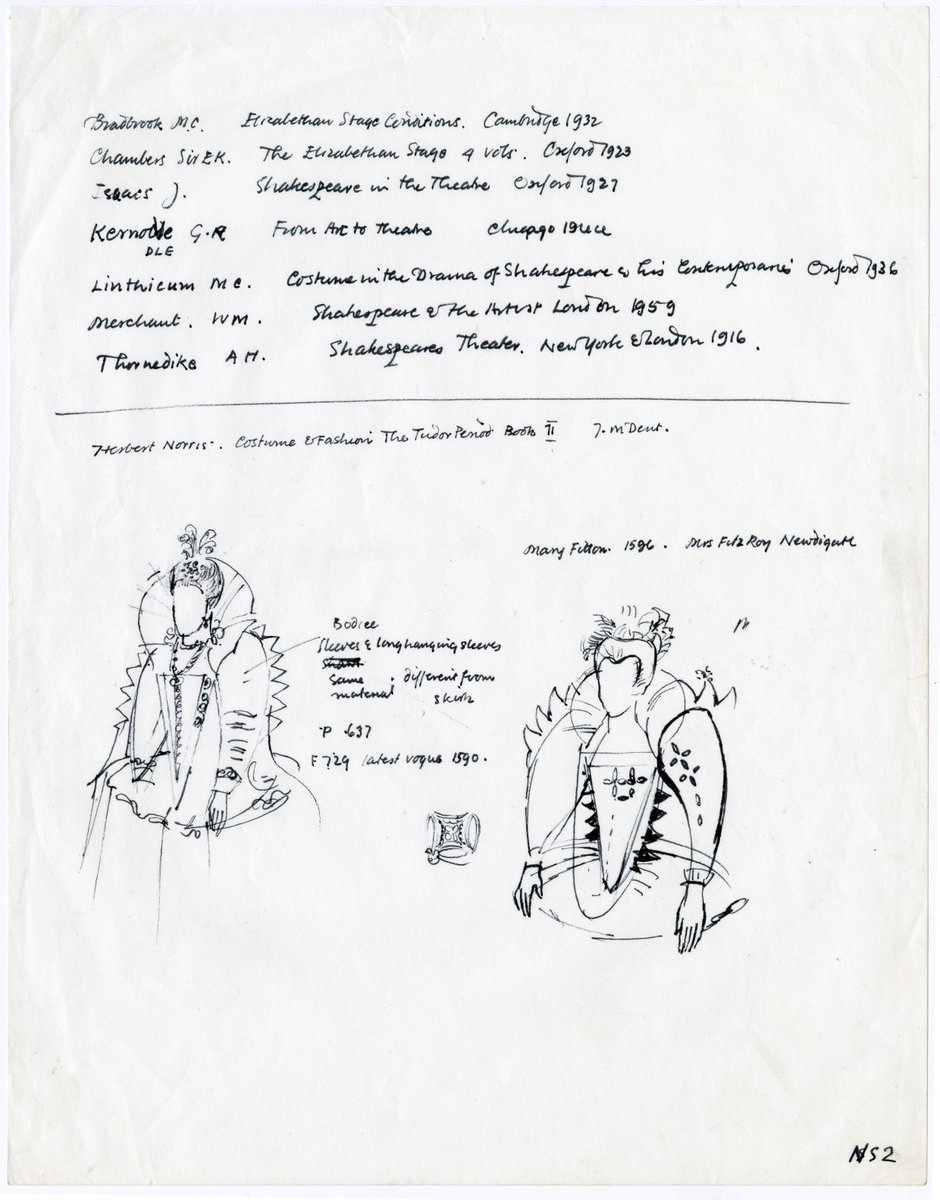 Bradbrook M.C. Elizabethan Stage Conditions. Cambridge 1932
Chambers Sir E.K. The Elizabethan Stage 4 vols. Oxford 1923
Isaacs J. Shakespeare in the Theatre Oxford 1927
Kernodle G.R From Art to Theatre Chicago
DLE
Linthicum M C. Costume in the Drama of Shakespeare & his Contemporaries Oxford 1936
Merchant. W M. Shakespeare & the Artist London 1959
Thornedike A H. Shakespeares Theater. New York & London 1916.
Herbert Norris. Costume & Fashion The Tudor Period Book II J. M Dent.
Mary Fitton. 1596. Mrs Fitz Roy Newdigate
Bodice
Sleeves & long hanging sleeves
same . different from
material skirt
P. 637
F 729 latest vogue 1590.
NS2